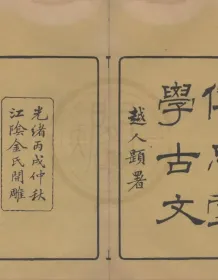 學古文
越人題署
光緒丙戌仲秋
江陰金氏開雕